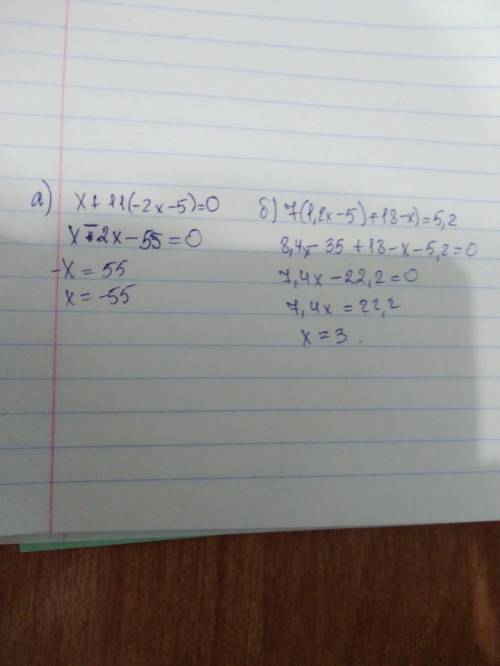 а) x + 11(-2x-5)=0
x-2x-55=0
-x = 55
x = -55
б) 7(1,2x-5)+18-x)=5,2
8,4x-35+18-x-5,2=0
7,4x-22,2=0
7,4x = 22,2
x = 3.